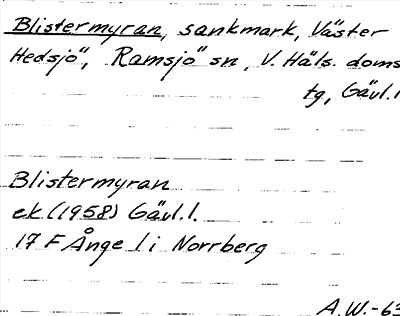 Blistermyran, sankmark, Väster
Hedsjö, Ramsjö sn, V. Häls. doms
tg, Gävl.l
Blistermyran
ek (1958) Gävl.l.
17 F Ånge l i Norrberg
A.W.-63